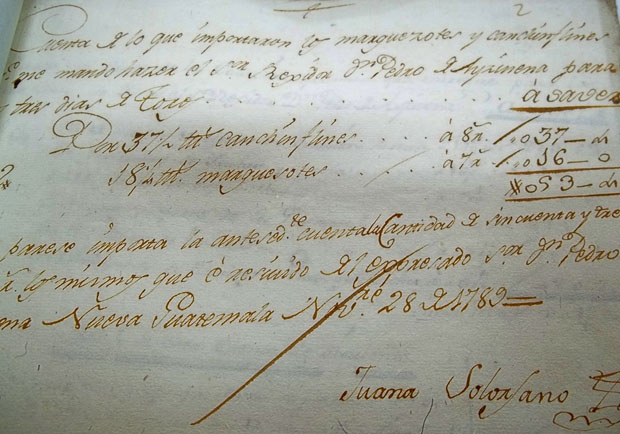 2
Cuenta de lo que importaron los marquesotes y canchinflines
que me mando hazer el Sor Regidor Dn Pedro de Ayzinena para
los tres dias de Toros . . . . . . . . á saver
Por 37½ ttt. canchinflines . . . . á 8 R. // 037 — 4
18½ ttt. marquesotes . . . . á 7 R. // 016 — 0
$ 053 — 4
parese importa la antesedte cuenta la Cantidad de sincuenta y tres
los mismos que é resivido del expresado Sor Dn Pedro
Nueva Guatemala Nvre 28 de 1789 —
Juana Solorsano